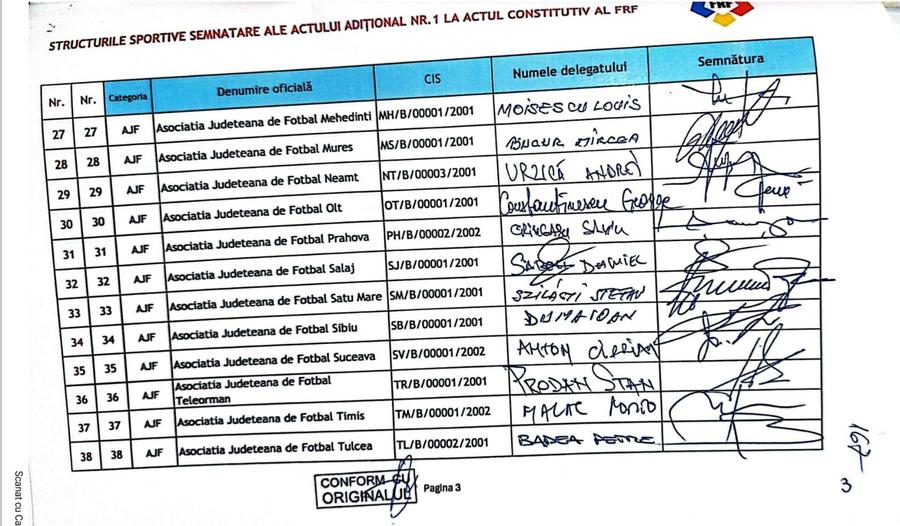 STRUCTURILE SPORTIVE SEMNATARE ALE ACTULUI ADIȚIONAL NR.1 LA ACTUL CONSTITUTIV AL FRF
FRF
Nr. Nr. Categoria Denumire oficială CIS Numele delegatului Semnătura
27 27 AJF Asociatia Judeteana de Fotbal Mehedinti MH/B/00001/2001 MOISESCU LOUIS
28 28 AJF Asociatia Judeteana de Fotbal Mures MS/B/00001/2001 MIRCEA
29 29 AJF Asociatia Judeteana de Fotbal Neamt NT/B/00003/2001 URZICĂ ANDREI
30 30 AJF Asociatia Judeteana de Fotbal Olt OT/B/00001/2001 Constantinescu George
31 31 AJF Asociatia Judeteana de Fotbal Prahova PH/B/00002/2002 Silviu
32 32 AJF Asociatia Judeteana de Fotbal Salaj SJ/B/00001/2001 DANIEL
33 33 AJF Asociatia Judeteana de Fotbal Satu Mare SM/B/00001/2001 SZILAGYI STEFAN
34 34 AJF Asociatia Judeteana de Fotbal Sibiu SB/B/00001/2001
35 35 AJF Asociatia Judeteana de Fotbal Suceava SV/B/00001/2002 ANTON CIPRIAN
36 36 AJF Asociatia Judeteana de Fotbal
Teleorman TR/B/00001/2001 PRODAN STAN
37 37 AJF Asociatia Judeteana de Fotbal Timis TM/B/00001/2002
38 38 AJF Asociatia Judeteana de Fotbal Tulcea TL/B/00002/2001 BADEA PETRE
CONFORM CU
ORIGINALUL
Pagina 3
3
Scanat cu Ca